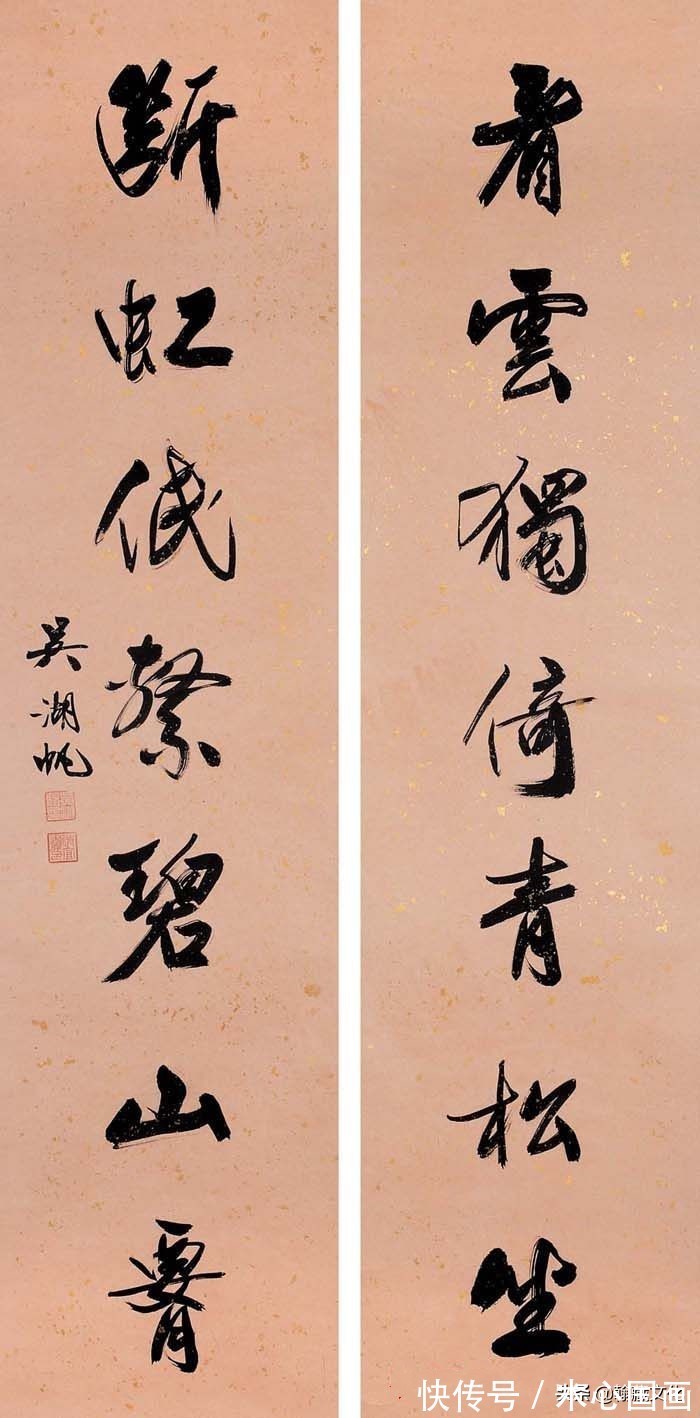 看雲獨倚青松坐
斷虹低繫碧山腰
吳湖帆
快传号 / 米心国画